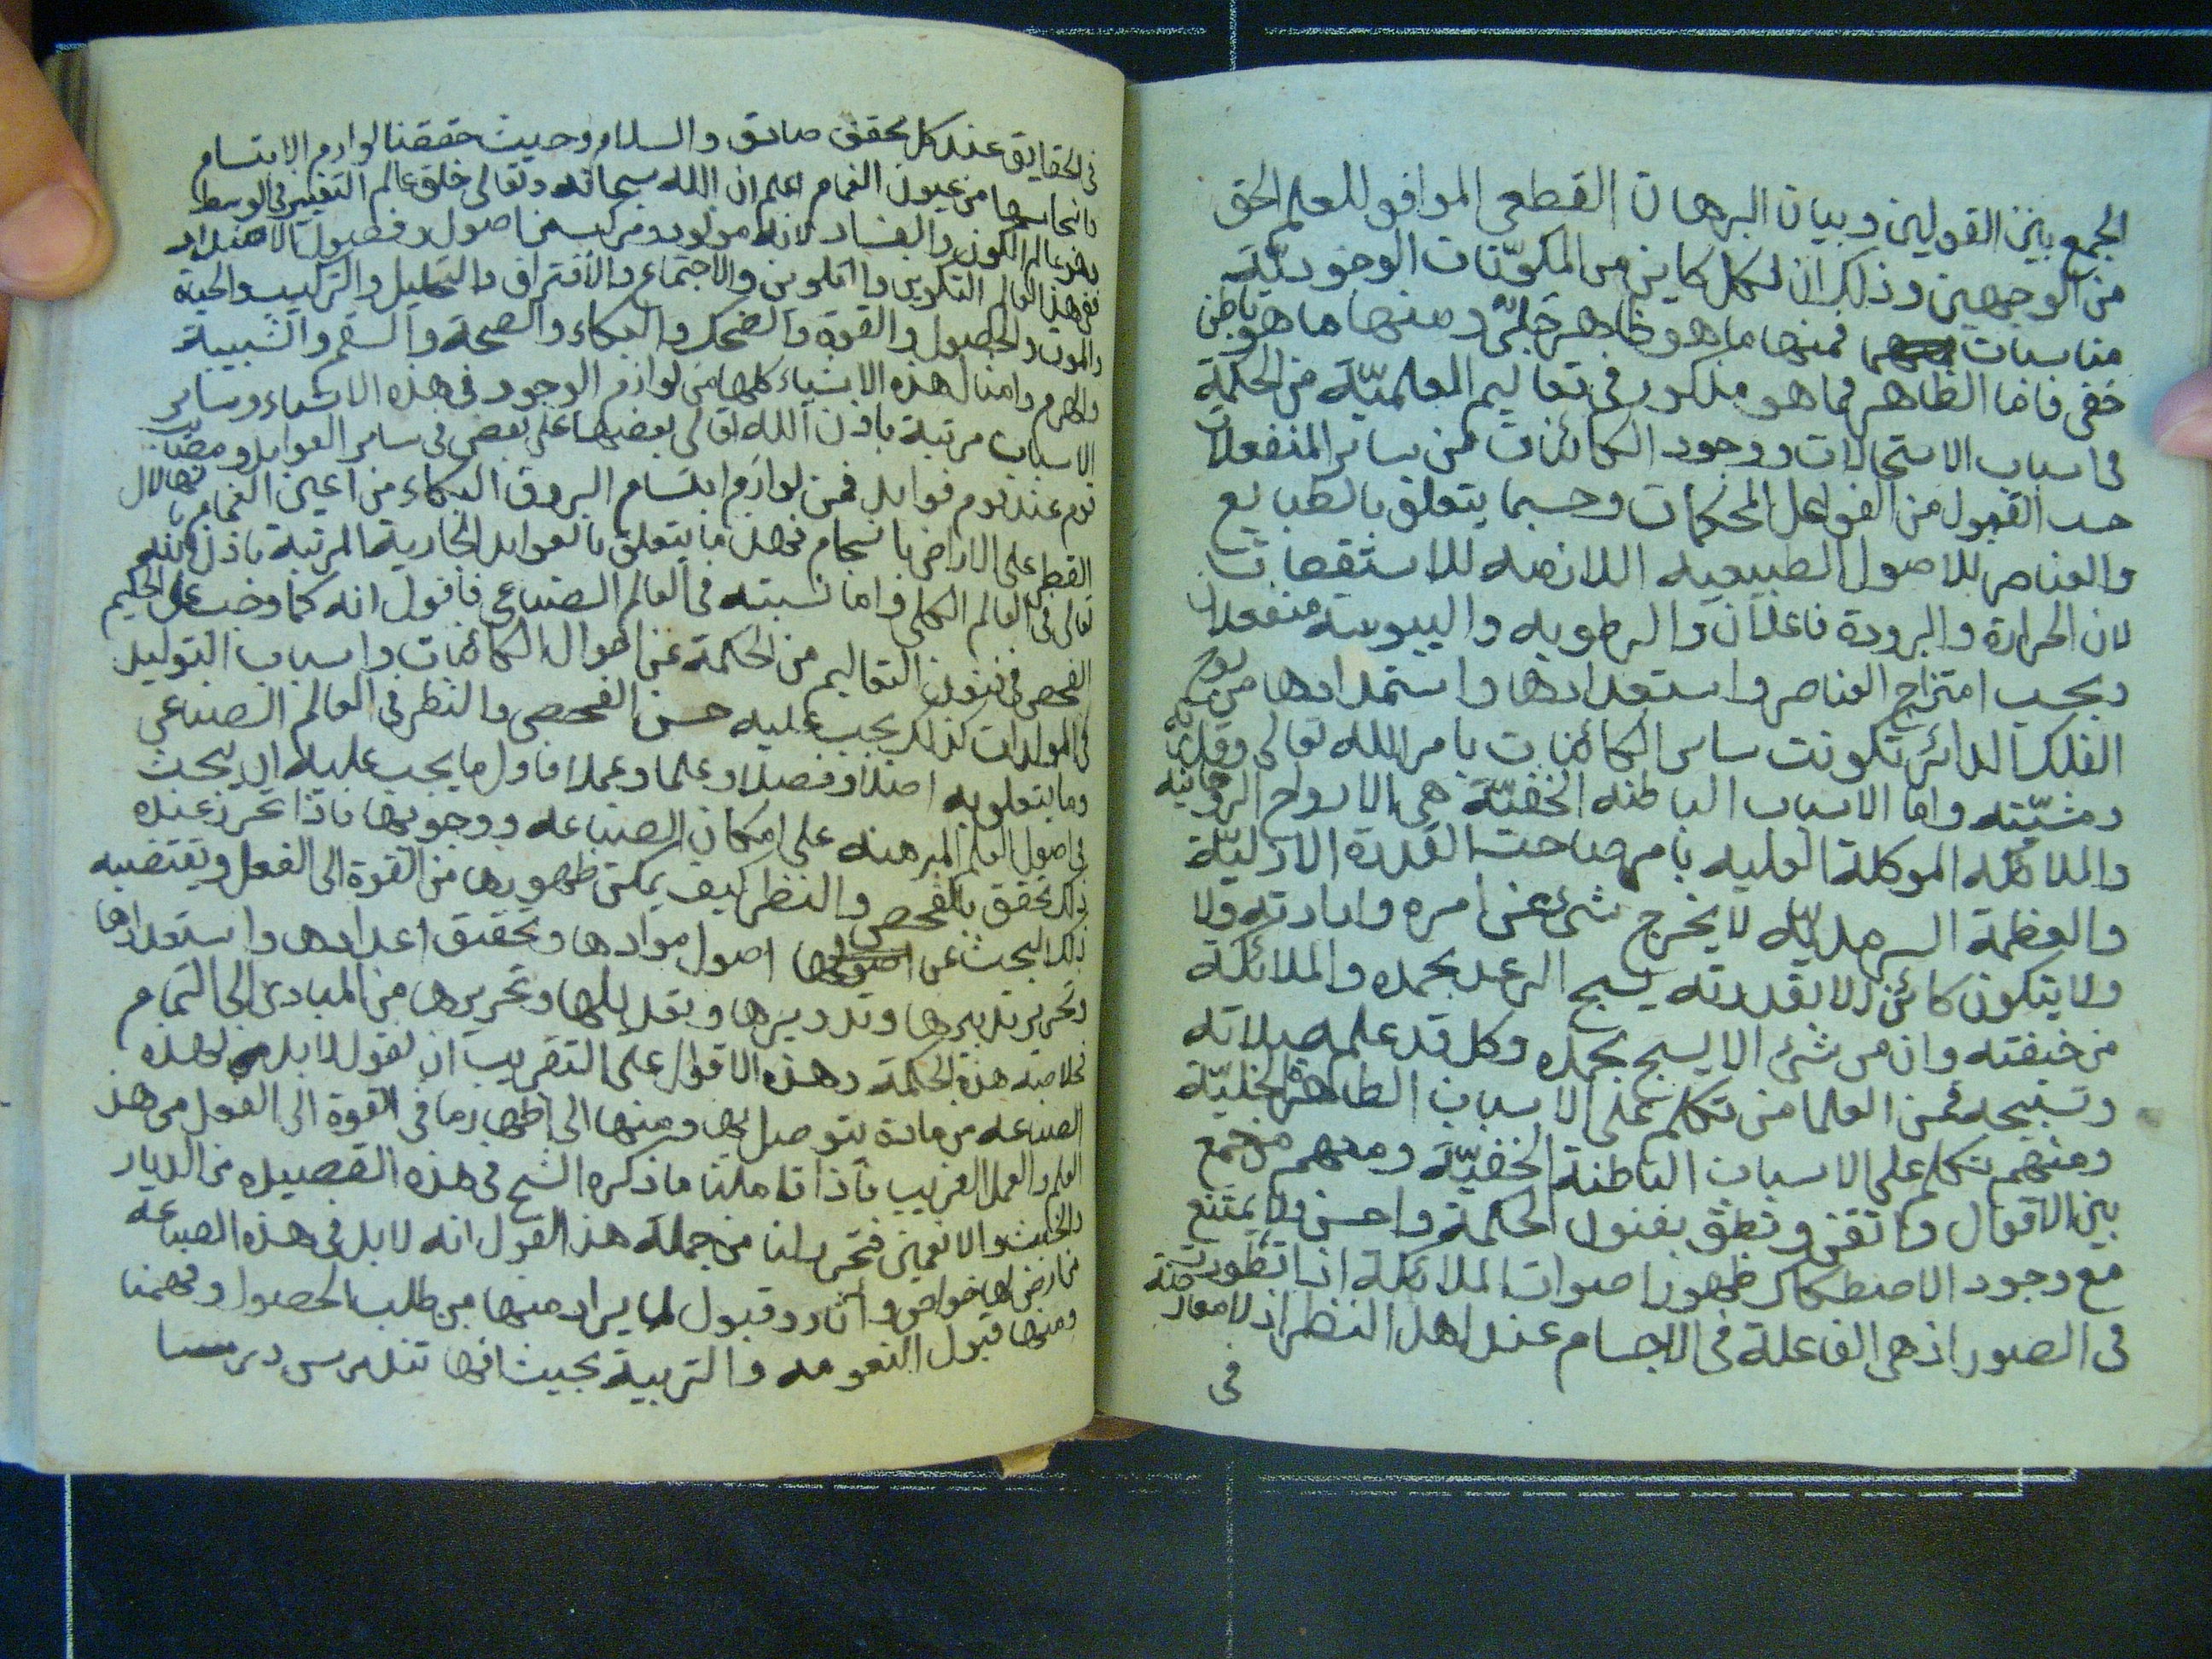 الجمع بين القولين وبيان البرهان القطعى الموافق للعلم الحق
من الوجهين وذلك ان لكل كاين من المكوّنات الوجوديّة
مناسبات فمنها ما هو ظاهر جَلىّ ومنها ما هو باطن
خفى فاما الظاهر فما هو مذكور فى تعاليم المعلميّة من الحكمة
فى اسباب الاستحالات ووجود الكائنات من ساير المنفعلات
حد القبول من الفواعل المحكمات وحسبما يتعلق بالطبايع
والعناصر للاصول الطبيعيه اللازمه للاستقصات
لان الحرارة والبرودة فاعلان والرطوبه واليبوسه منفعلان
وبحسب امتزاج العناصر واستعدادها واستمدادها من نور
الفلك الدائر تكونت ساير الكائنات بامر الله تعالى وقدرته
ومشيّته واما الاسباب الباطنه الخفيّة هى الارواح الروحانيه
والملائكه الموكلة العليه بامر صاحب القدرة الازليّة
والعظمة السرمديّه لا يخرج شئ عن امره وارادته ولا
ولا يتكون كائن الا بقدرته يسبح الرعد بحمده والملائكة
من خيفته وان من شئ الا يسبح بحمده وكل قد علم صلاته
وتسبيحه فمن العلما من تكلم على الاسباب الظاهرة الجليّة
ومنهم من تكلم على الاسباب الباطنة الخفيّة ومنهم من جمع
بين الاقوال واتقن ونطق بفنون الحكمة واحسن ولا يمتنع
مع وجود الاصطكاك ظهور اصوات الملائكة اذا تطورت
فى الصور اذ هى الفاعلة فى الاجسام عند اهل النظر اذ لا معارضة
فى
فى الحقايق عند كل محقق صادق والسلام وحيث حققنا لوازم الابتسام
وانحاسها من عيون الغمام اعلم ان الله سبحانه وتعالى خلق عالم التغيير فى الوسط
وهو عالم الكون والفساد لانه مولود مركب من اصول وفصول الاضداد
ففى هذا العالم التكوين والتلوين والاجتماع والافتراق والتحليل والتركيب والحياة
والموت والحصول والقوة والضحك والبكاء والصحة والسقم والشبيبة
والهرم وامثال هذه الاشياء كلها من لوازم الوجود فى هذه الاشياء وساير
الاسباب مرتبة باذن الله تعالى بعضها على بعض فى ساير العوايد ومصائب
قوم عند قوم فوايد فمن لوازم ابتسام البروق البكاء من اعين الغمام بانهلال
القطر على الاراضى بانسجام فهذا ما يتعلق بالعوايد الجارية المرتبة باذن الله
تعالى فى العالم الكلى واما نسبته فى العالم الصناعى فاقول انه كما وجب على الحكيم
الفحص فى فنون التعاليم من الحكمة عن احوال الكائنات واسباب التوليد
فى المولدات كذلك يجب عليه حسن الفحص والنظر فى العالم الصناعى
وما يتعلق به اصلا وفصلا وعلما وعملا فاول ما يجب عليه ان يبحث
فى اصول العلم المبرهنه على امكان الصناعه ووجوبها فاذا تحرر عنده
ذلك تحقق بالفحص والنظر كيف يمكن ظهورها من القوة الى الفعل ويقتضيه
ذلك البحث عن اصول موادها وتحقيق اعدادها واستعدادها
وتحرير تدبيرها وتدويرها وتعديلها وتحريرها من المبادى الى التمام
خلاصة هذه الحكمة وهذه الاقوال على التقريب ان نقول لا بد لهذه
الصناعه من مادة يتوصل بها ومنها الى اظهار ما فى القوة الى الفعل من هذا
العلم والعمل الغريب فاذا تاملنا ما ذكره الشيخ فى هذه القصيده من الديار
والخليط والانعمين فتحرر لنا من جملة هذا القول انه لا بد فى هذه الصناعه
من ارض لها خواص واثار وقبول لما يراد منها من طلب الحصول وفهمنا
ومنها قبول النعومه والتربية بحيث انها تندرس درسا